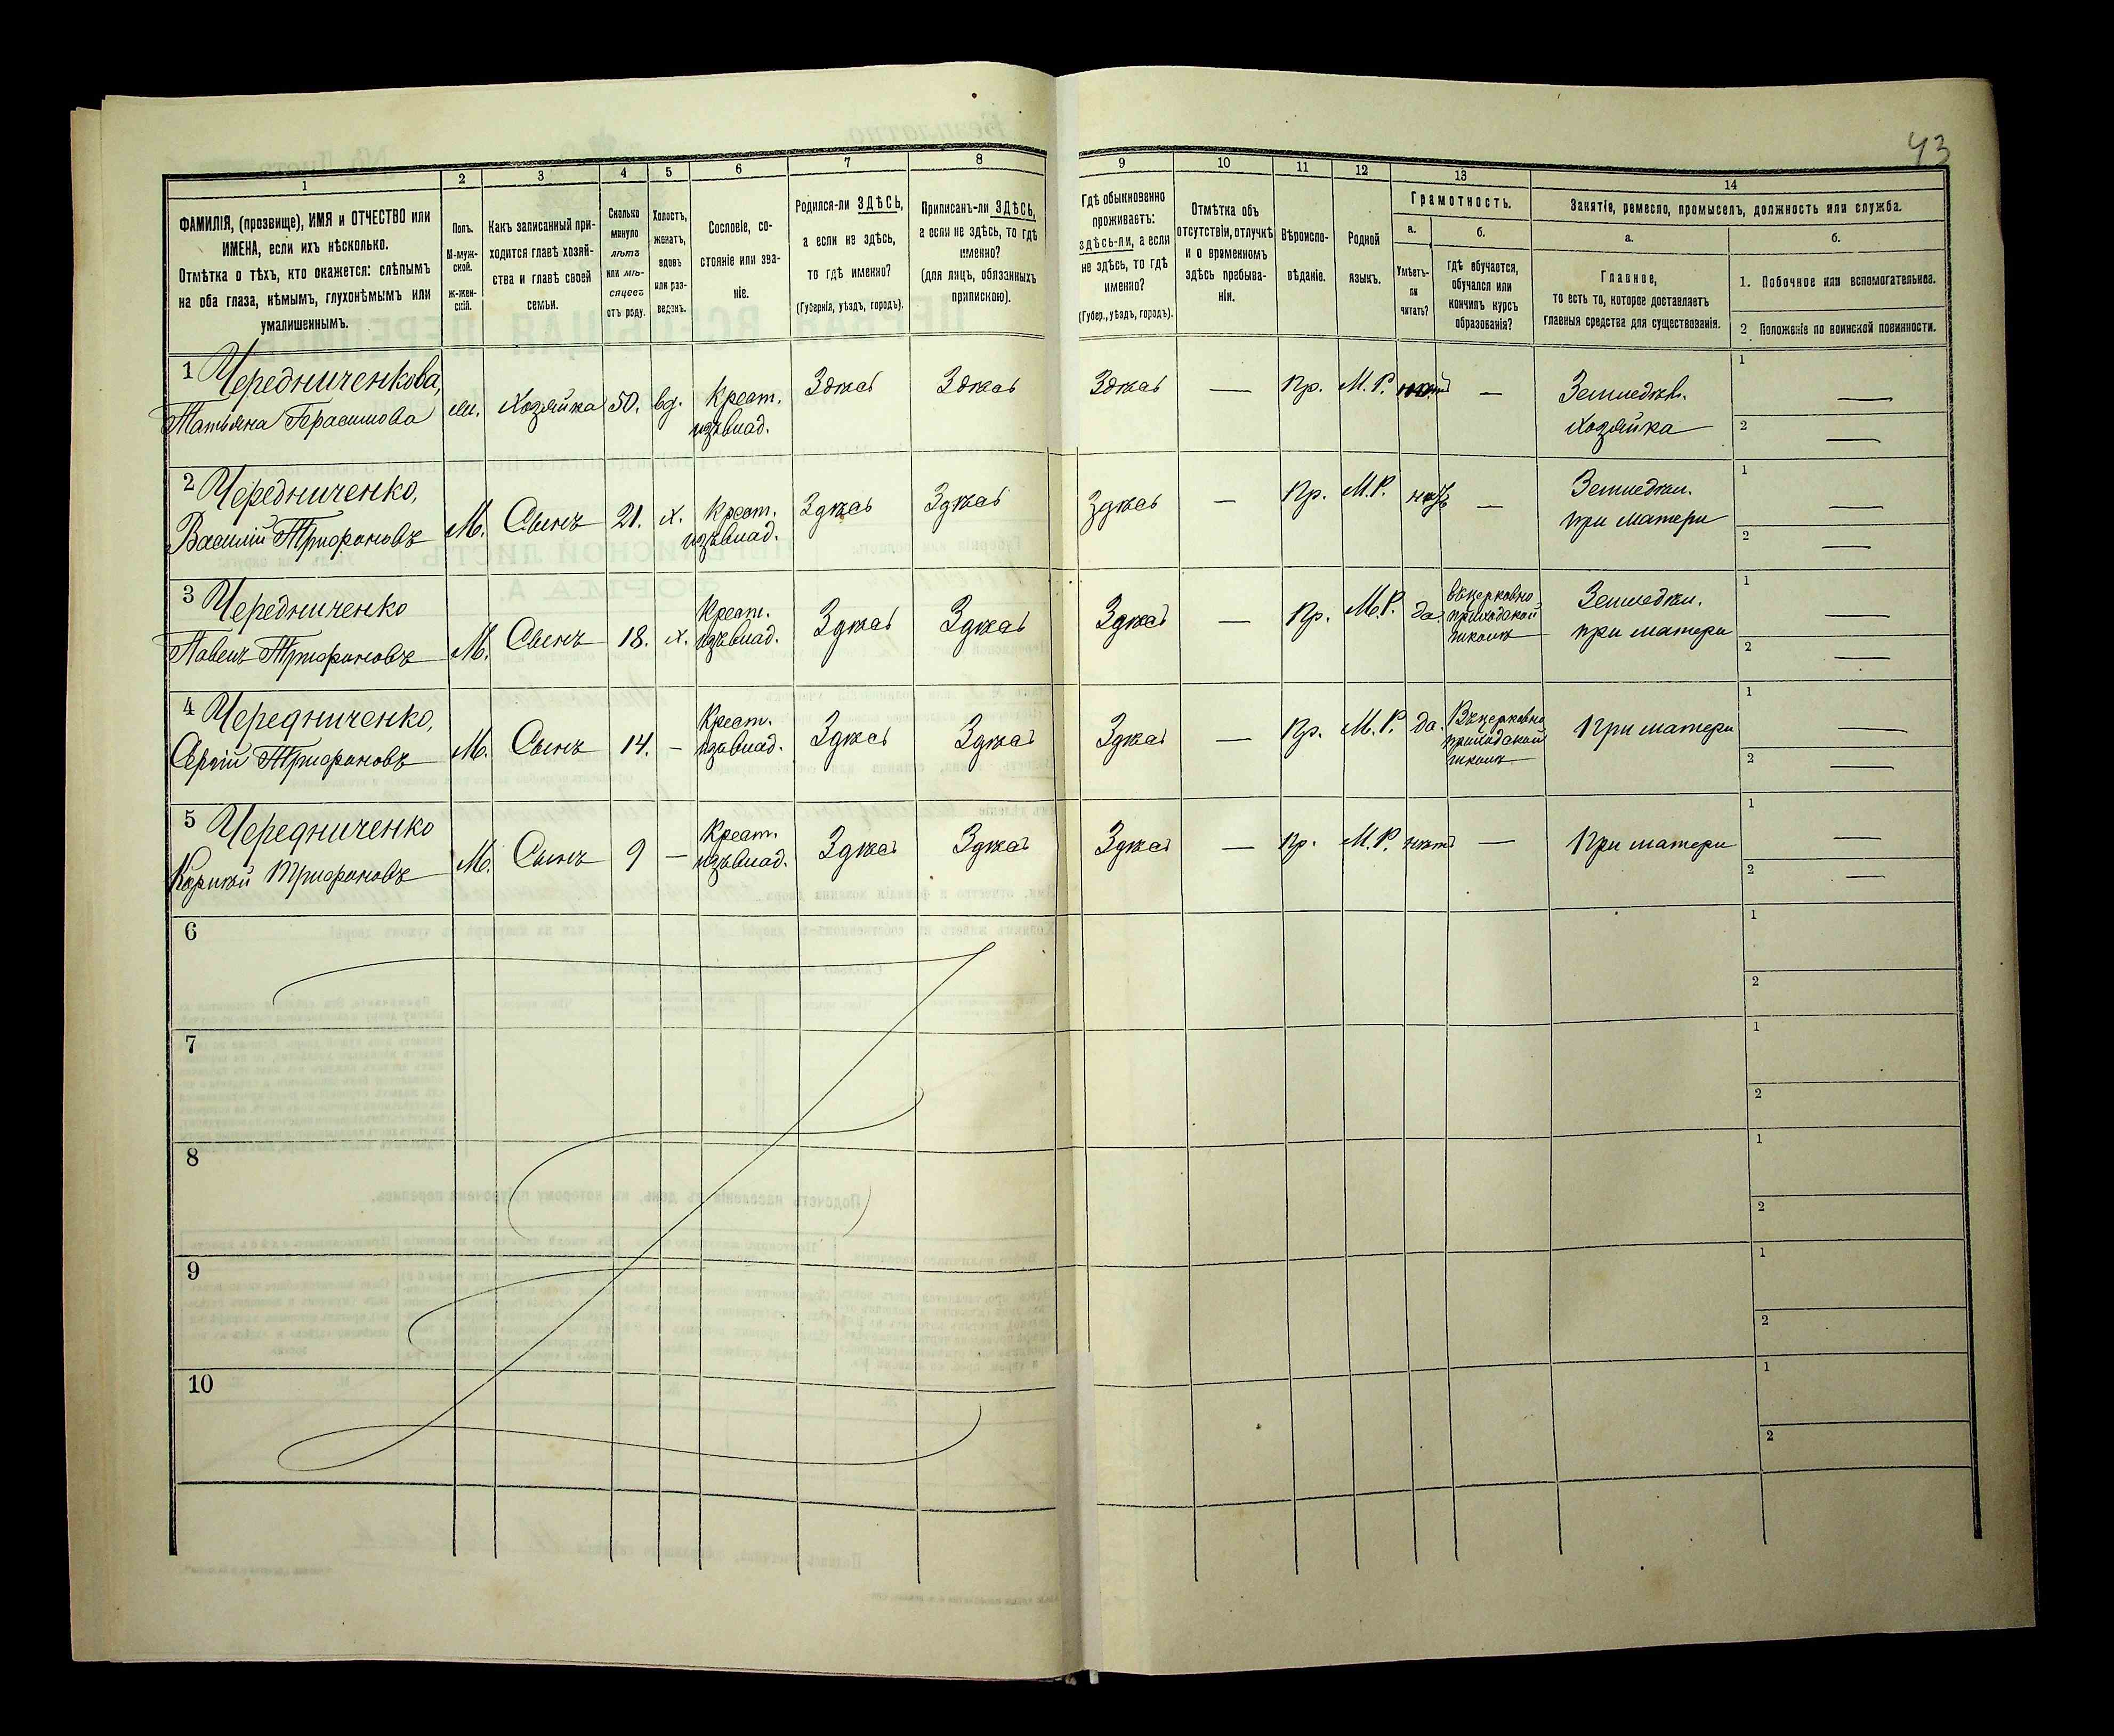 43
1
2
3
4
5
6
7
8
9
10
11
12
13
14
ФАМИЛІЯ, (прозвище), ИМЯ и ОТЧЕСТВО или
ИМЕНА, если ихъ нѣсколько.
Отмѣтка о тѣхъ, кто окажется: слѣпымъ
на оба глаза, нѣмымъ, глухонѣмымъ или
умалишеннымъ.
Полъ.
М-муж-
ской.
ж-жен-
скій.
Какъ записанный при-
ходится главѣ хозяй-
ства и главѣ своей
семьи.
Сколько
минуло
лѣтъ
или мѣ-
сяцевъ
отъ роду.
Холостъ,
женатъ,
вдовъ
или раз-
веденъ.
Сословіе, со-
стояніе или зва-
ніе.
Родился-ли ЗДѢСЬ,
а если не здѣсь,
то гдѣ именно?
(Губернія, уѣздъ, городъ).
Приписанъ-ли ЗДѢСЬ,
а если не здѣсь, то гдѣ
именно?
(для лицъ, обязанныхъ
припискою).
Гдѣ обыкновенно
проживаетъ:
здѣсь-ли, а если
не здѣсь, то гдѣ
именно?
(Губер., уѣздъ, городъ).
Отмѣтка объ
отсутствіи, отлучкѣ
и о временномъ
здѣсь пребыва-
ніи.
Вѣроиспо-
вѣданіе.
Родной
языкъ.
Грамотность.
а.
Умѣетъ-
ли
читать?
б.
гдѣ обучается,
обучался или
кончилъ курсъ
образованія?
Занятіе, ремесло, промыселъ, должность или служба.
а.
Главное,
то есть то, которое доставляетъ
главныя средства для существованія.
б.
1. Побочное или вспомогательное.
2 Положеніе по воинской повинности.
1 Чередниченкова,
Татьяна Герасимова
ж.
Хозяйка
50.
вд.
Крест.
изъ влад.
Здѣсь
Здѣсь
Здѣсь
—
Пр.
М. Р.
нѣтъ
—
Земледѣл.
Хозяйка
1 —
2 —
2 Чередниченко,
Василій Трифоновъ
М.
Сынъ
21.
х.
Крест.
изъ влад.
Здѣсь
Здѣсь
Здѣсь
—
Пр.
М. Р.
нѣтъ
—
Земледѣл.
при матери
1 —
2 —
3 Чередниченко
Павелъ Трифоновъ
М.
Сынъ
18.
х.
Крест.
изъ влад.
Здѣсь
Здѣсь
Здѣсь
—
Пр.
М. Р.
да.
въ церковно
приходской
школѣ
Земледѣл.
при матери
1 —
2 —
4 Чередниченко,
Сергій Трифоновъ
М.
Сынъ
14.
—
Крест.
изъ влад.
Здѣсь
Здѣсь
Здѣсь
—
Пр.
М. Р.
да.
Въ церковно
приходской
школѣ
При матери
1 —
2 —
5 Чередниченко
Корнѣй Трифоновъ
М.
Сынъ
9
—
Крест.
изъ влад.
Здѣсь
Здѣсь
Здѣсь
—
Пр.
М. Р.
нѣтъ
—
При матери
1 —
2 —
6
1
2
7
1
2
8
1
2
9
1
2
10
1
2